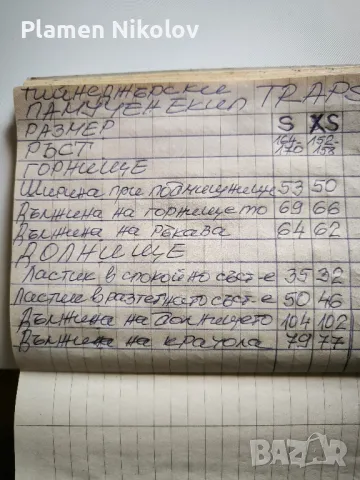 Plamen Nikolov
ТИЙНЕДЖЪРСКИ
ПАМУЧЕН ЕКИП TRAPS
РАЗМЕР S XS
РЪСТ 164-170 152-158
ГОРНИЩЕ
Ширина при подмишниците 53 50
Дължина на горнището 69 66
Дължина на ръкава 64 62
ДОЛНИЩЕ
Ластик в спокойно със-е 35 32
Ластик в разтегнато със-е 50 46
Дължина на долнището 104 102
Дължина на крачола 79 77
BAZAR.BG